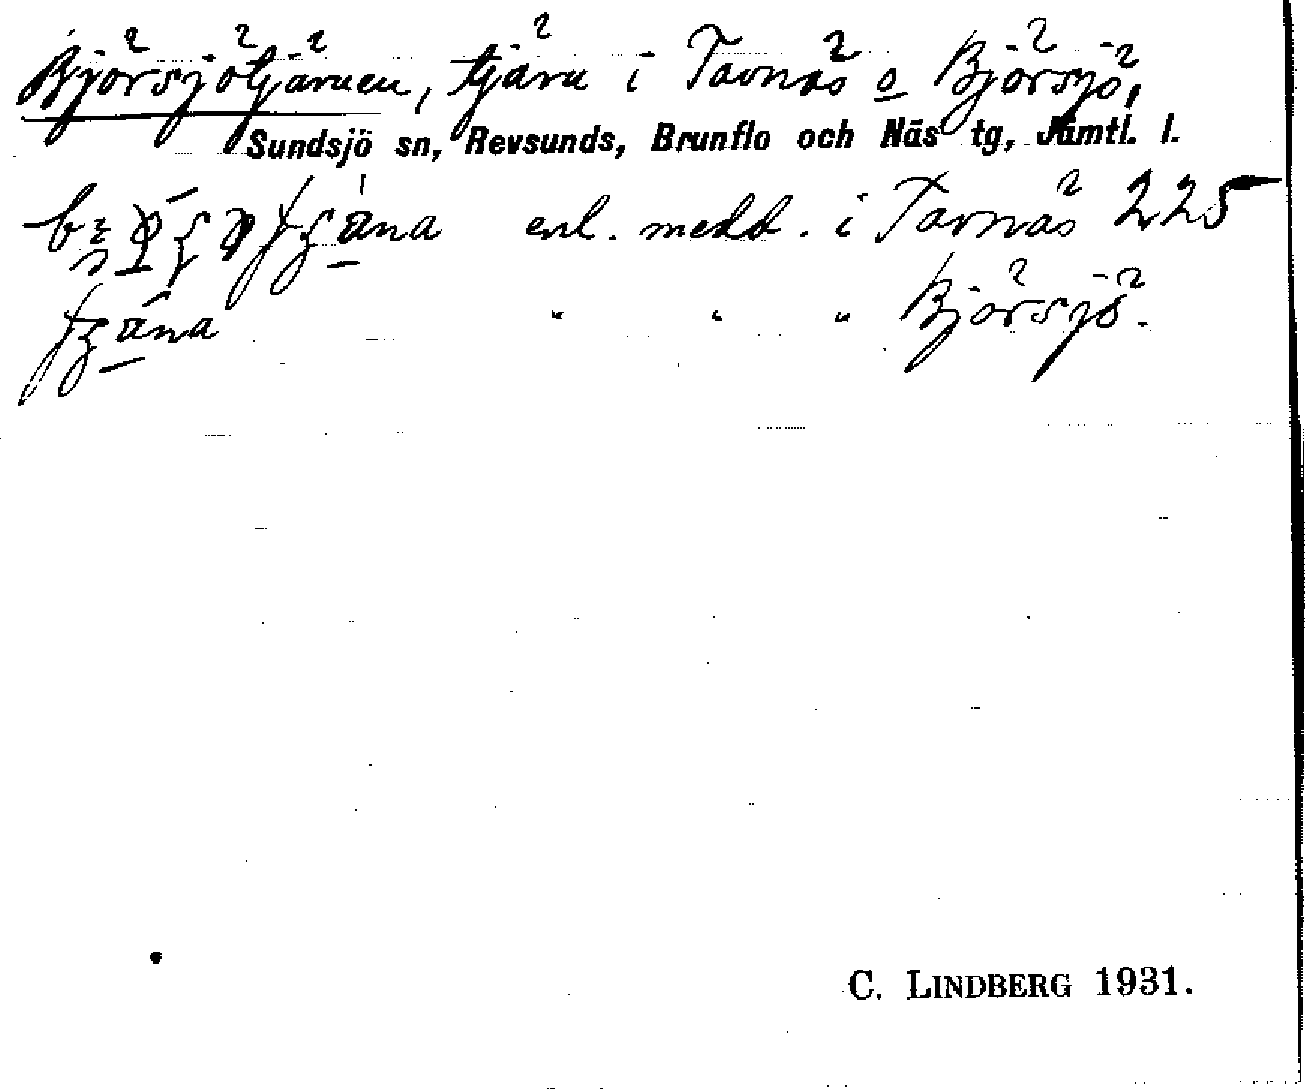 Björsjötjärnen, tjärn i Tavnäs o Björsjö,
Sundsjö sn, Revsunds, Brunflo och Näs tg, Jämtl. l.
enl. medd. i Tavnäs 225
" " Björsjö.
C. LINDBERG 1931.